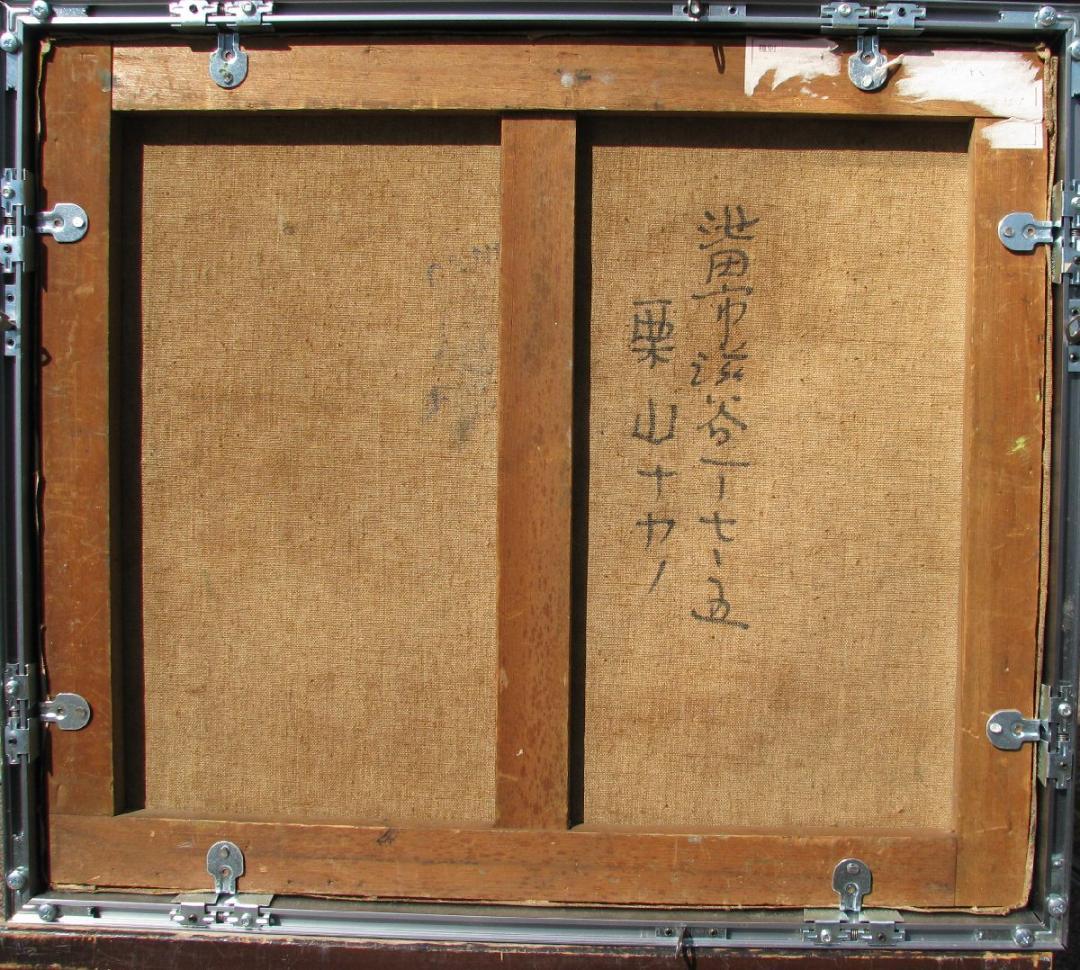 池田市渋谷一丁七ー五
栗山ナカノ